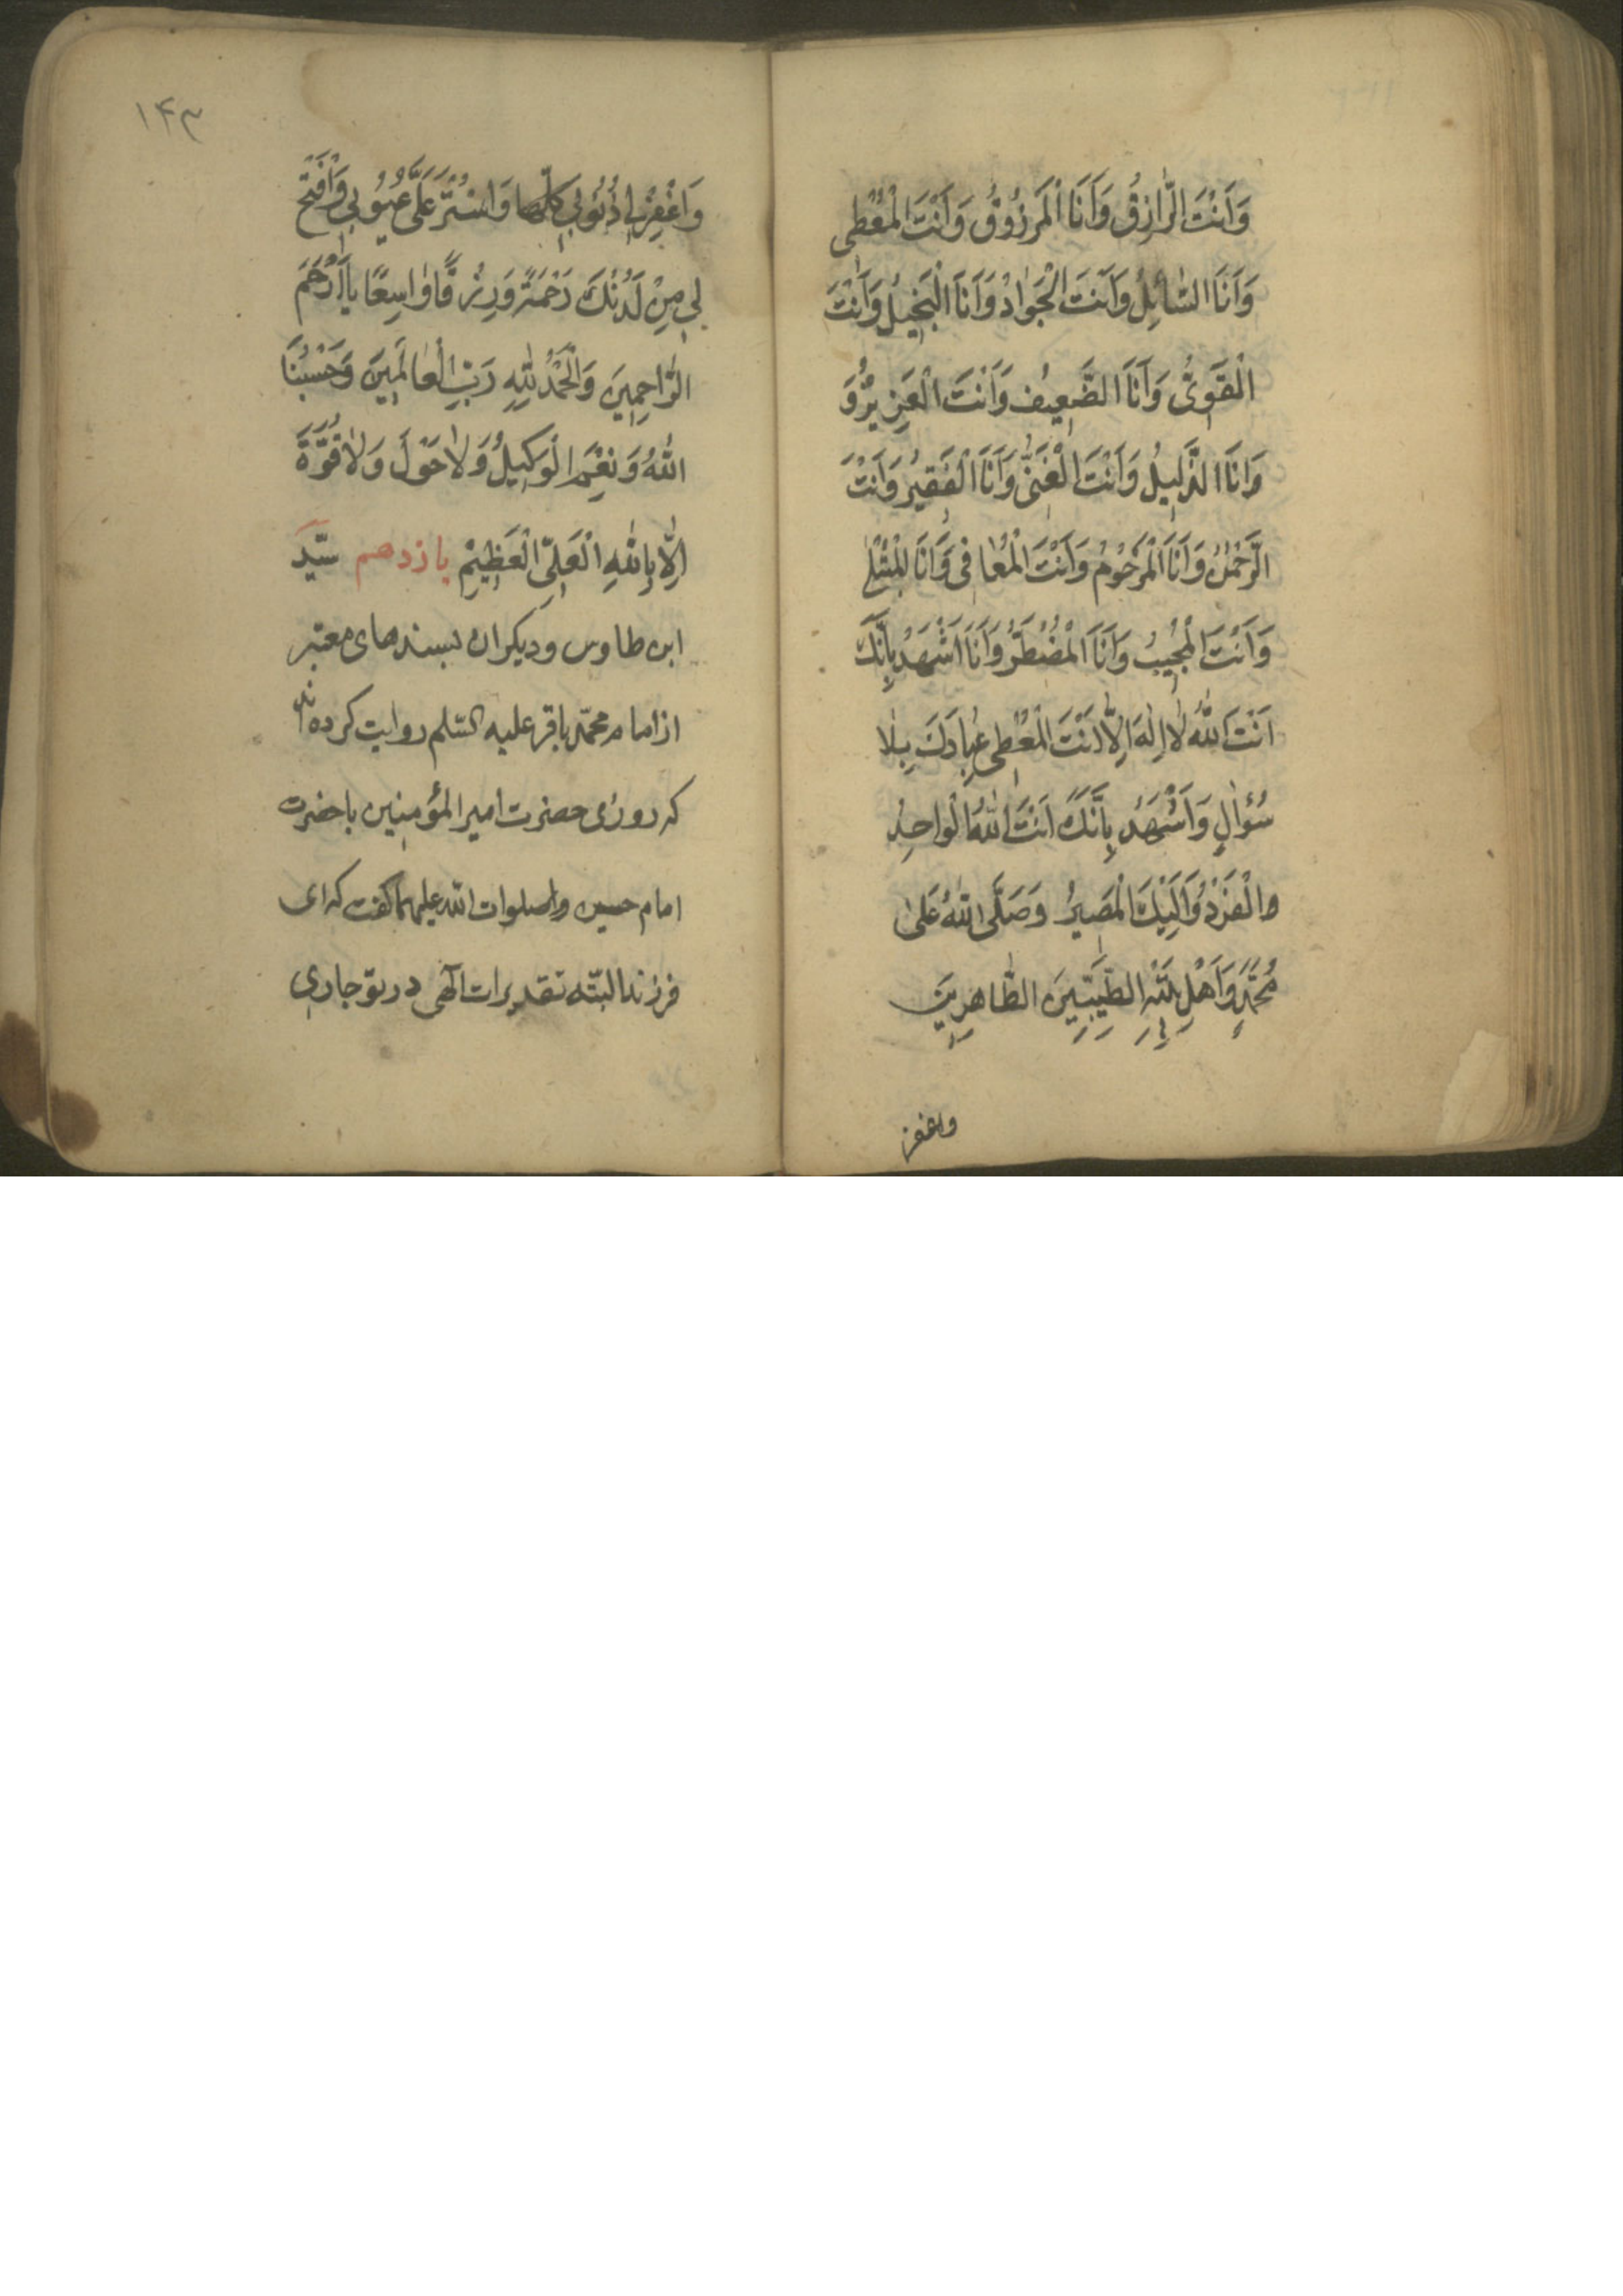 وَاَنْتَ الرّٰازِقُ وَاَنَا الْمَرْزُوقُ وَاَنْتَ الْمُعْطِی
وَاَنَا السّٰائِلُ وَاَنْتَ الْجَوٰادُ وَاَنَا الْبَخیلُ وَاَنْتَ
الْقَوِیُّ وَاَنَا الضَّعیف وَاَنْتَ الْعَزیزُ وَ
وَاَنَا الذَّلیلُ وَاَنْتَ الْغَنِیُّ وَاَنَا الْفَقیرُ وَاَنْتَ
الرَّحْمٰنُ وَاَنَا الْمَرْحُومُ وَاَنْتَ الْمُعٰافی وَاَنَا الْمُبْتَلیٰ
وَاَنْتَ الْمُجیبُ وَاَنَا الْمُضْطَرُّ وَاَنَا اَشْهَدُ بِاَنَّكَ
اَنْتَ اللّٰهُ لٰا اِلٰهَ اِلّٰا اَنْتَ الْمُعْطی عِبٰادَكَ بِلٰا
سُؤٰالٍ وَاَشْهَدُ بِاَنَّكَ اَنْتَ اللّٰهُ الْوٰاحِدُ
والْفَرْدُ وَاِلَیْكَ الْمَصیرُ وَصَلَّی اللّٰهُ عَلیٰ
مُحَمَّدٍ وَاَهْلِ بَیْتِهِ الطَّیِّبینَ الطّٰاهِرینَ
واغفر
۱۴۳
وَاغْفِرْلی ذُنُوبی كُلَّهٰا وَاسْتُرْ عَلَیَّ عُیُوبی وَافْتَحْ
لی مِنْ لَدُنْكَ رَحْمَةً وَرِزْقًا وٰاسِعًا یٰا اَرْحَمَ
الرّٰاحِمینَ وَالْحَمْدُ لِلّٰهِ رَبِّ الْعٰالَمینَ وَحَسْبُنَا
اللّٰهُ وَنِعْمَ الْوَكیلُ وَلٰا حَوْلَ وَلٰا قُوَّةَ
اِلّٰا بِاللّٰهِ الْعَلِیِّ الْعَظیمْ یازدهم سیّد
ابن طاوس و دیکران بسندهای معتبر
از امام محمّد باقر علیه السّلم روایت کرده اند
که روزی حضرت امیر المؤمنین با حضرت
امام حسین صلوات الله علیهما کفت که ای
فرزند البتّه تقدیرات الٓهی در تو جاری